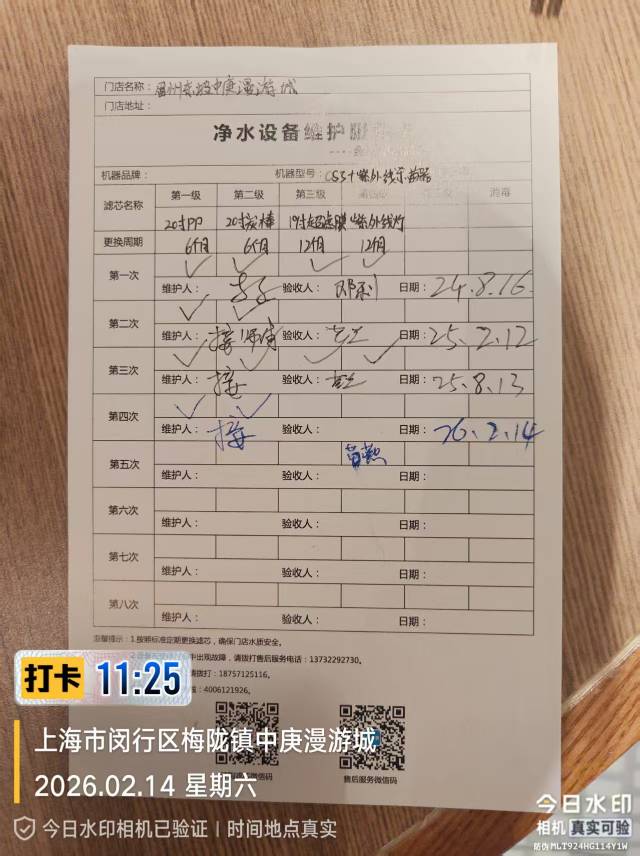 门店名称：温州东坡中庚漫游城
门店地址：
净水设备维护
机器品牌：
机器型号：CS3+紫外线杀菌器
滤芯名称 第一级 第二级 第三级 第四级 消毒
20寸PP 20寸炭棒 19寸超滤膜 紫外线灯
更换周期 6个月 6个月 12个月 12个月
第一次 ✓ ✓ ✓ ✓
维护人： 验收人：邓利 日期：24.8.16
第二次 ✓ ✓
维护人：接 验收人： 日期：25.2.12
第三次 ✓ ✓ ✓ ✓
维护人：接 验收人： 日期：25.8.13
第四次 ✓ ✓
维护人：接 验收人： 日期：26.2.14
第五次
维护人： 验收人： 日期：
第六次
维护人： 验收人： 日期：
第七次
维护人： 验收人： 日期：
第八次
维护人： 验收人： 日期：
温馨提示：1.按照标准定期更换滤芯，确保门店水质安全。
中出现故障，请拨打售后服务电话：13732292730。
请拨打：18757125116。
4006121926。
微信码
售后服务微信码
打卡 11:25
上海市闵行区梅陇镇中庚漫游城
2026.02.14 星期六
今日水印相机已验证 | 时间地点真实
今日水印
相机 真实可验
防伪 MLT924HG114Y1W